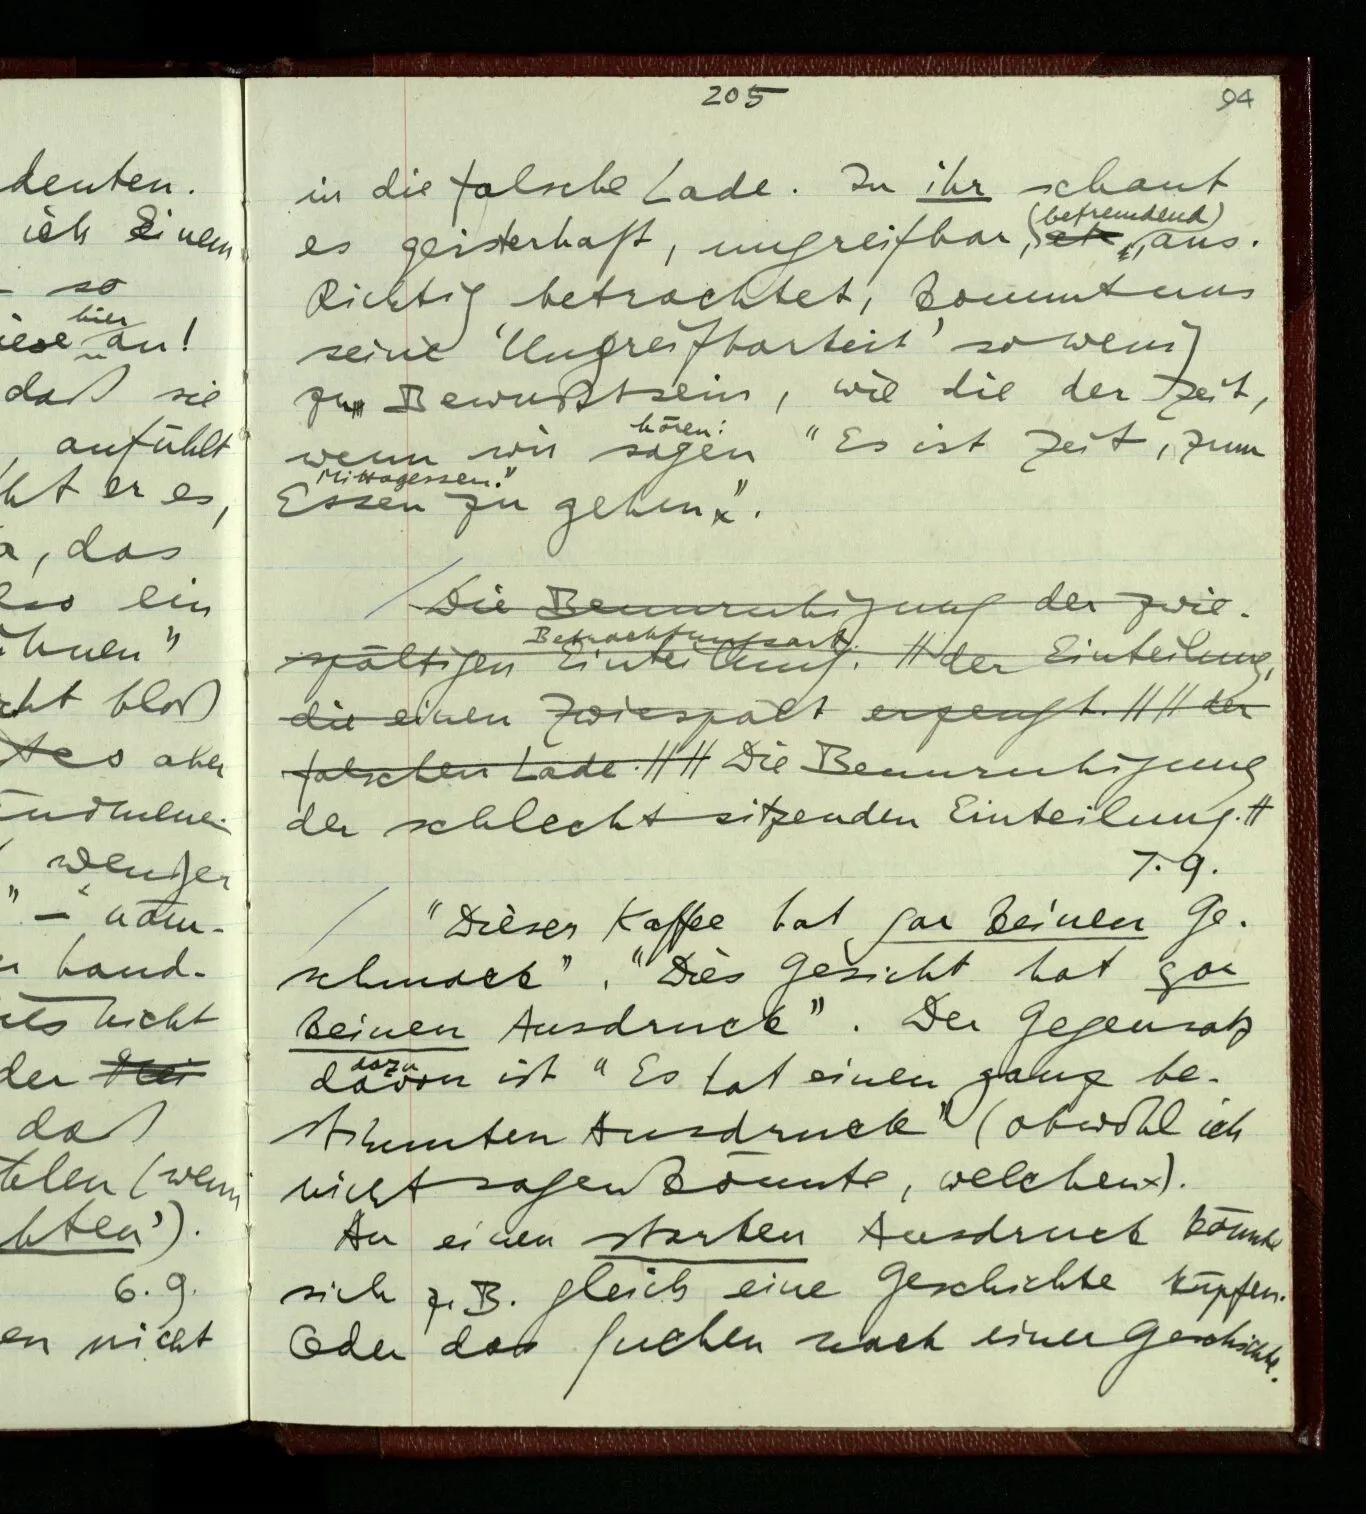 205
94
denten.
ich Einem
so
hier
an!
daß sie
, anfühlt
er es,
, das
ein
"
bloß
aber
weniger
" –
hand-
nicht
der
daß
(wenn
').
6.9.
en nicht
in die falsche Lade. In ihr schaut
(befremdend)
es geisterhaft, ungreifbar, etc., aus.
Richtig betrachtet, kommt uns
seine 'Ungreifbarkeit' so wenig
zu Bewußtsein, wie die der Zeit,
hören:
wenn wir sagen "Es ist Zeit, zum
Mittagessen."
Essen zu gehen".
/ Die Beunruhigung der zwie-
Betrachtungsart.
spältigen Einteilung. // der Einteilung,
die einen Zwiespalt erzeugt. // // der
falschen Lade. // // Die Beunruhigung
der schlecht sitzenden Einteilung. //
7.9.
/ "Dieser Kaffee hat gar keinen Ge-
schmack". "Dies Gesicht hat gar
keinen Ausdruck". Der Gegensatz
dazu
davon ist "Es hat einen ganz be-
stimmten Ausdruck" (obwohl ich
nicht sagen könnte, welchen).
An einen starken Ausdruck könnte
sich z.B. gleich eine Geschichte küpfen.
Oder das Suchen nach einer Geschichte.